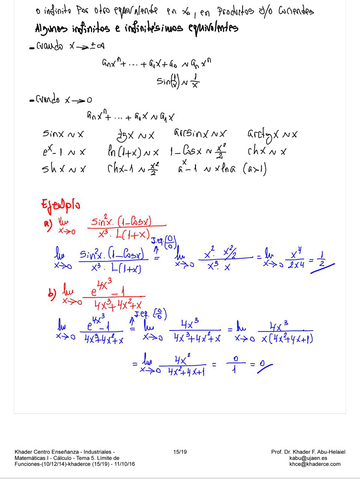 o infinito por otro equivalente en x₀, en productos y/o cocientes
Algunos infinitos e infinitésimos equivalentes
- Cuando x → ±∞
aₙxⁿ + ... + a₁x + a₀ ~ aₙxⁿ
sin(1/x) ~ 1/x
- Cuando x → 0
aₙxⁿ + ... + a₁x ~ a₁x
sinx ~ x tgx ~ x arcsinx ~ x arctgx ~ x
eˣ-1 ~ x ln(1+x) ~ x 1-Cosx ~ x²/2 chx ~ x
shx ~ x chx-1 ~ x²/2 aˣ-1 ~ x lna (a>1)
Ejemplo
a) lim x→0 sin²x·(1-Cosx) / x³·L(1+x)
lim x→0 sin²x·(1-Cosx) / x³·L(1+x) = lim x→0 x²·x²/2 / x³·x = lim x→0 x⁴ / 2x⁴ = 1/2
b) lim x→0 e^4x³ -1 / 4x³+4x²+x
lim x→0 e^4x³ -1 / 4x³+4x²+x = lim x→0 4x³ / 4x³+4x²+x = lim x→0 4x³ / x(4x²+4x+1)
= lim x→0 4x² / 4x²+4x+1 = 0/1 = 0
Khader Centro Enseñanza - Industriales - 15/19 Prof. Dr. Khader F. Abu-Helaiel
Matemáticas I - Cálculo - Tema 5. Límite de kabu@ujaen.es
Funciones-(10/12/14)-khaderce (15/19) - 11/10/16 khce@khaderce.com